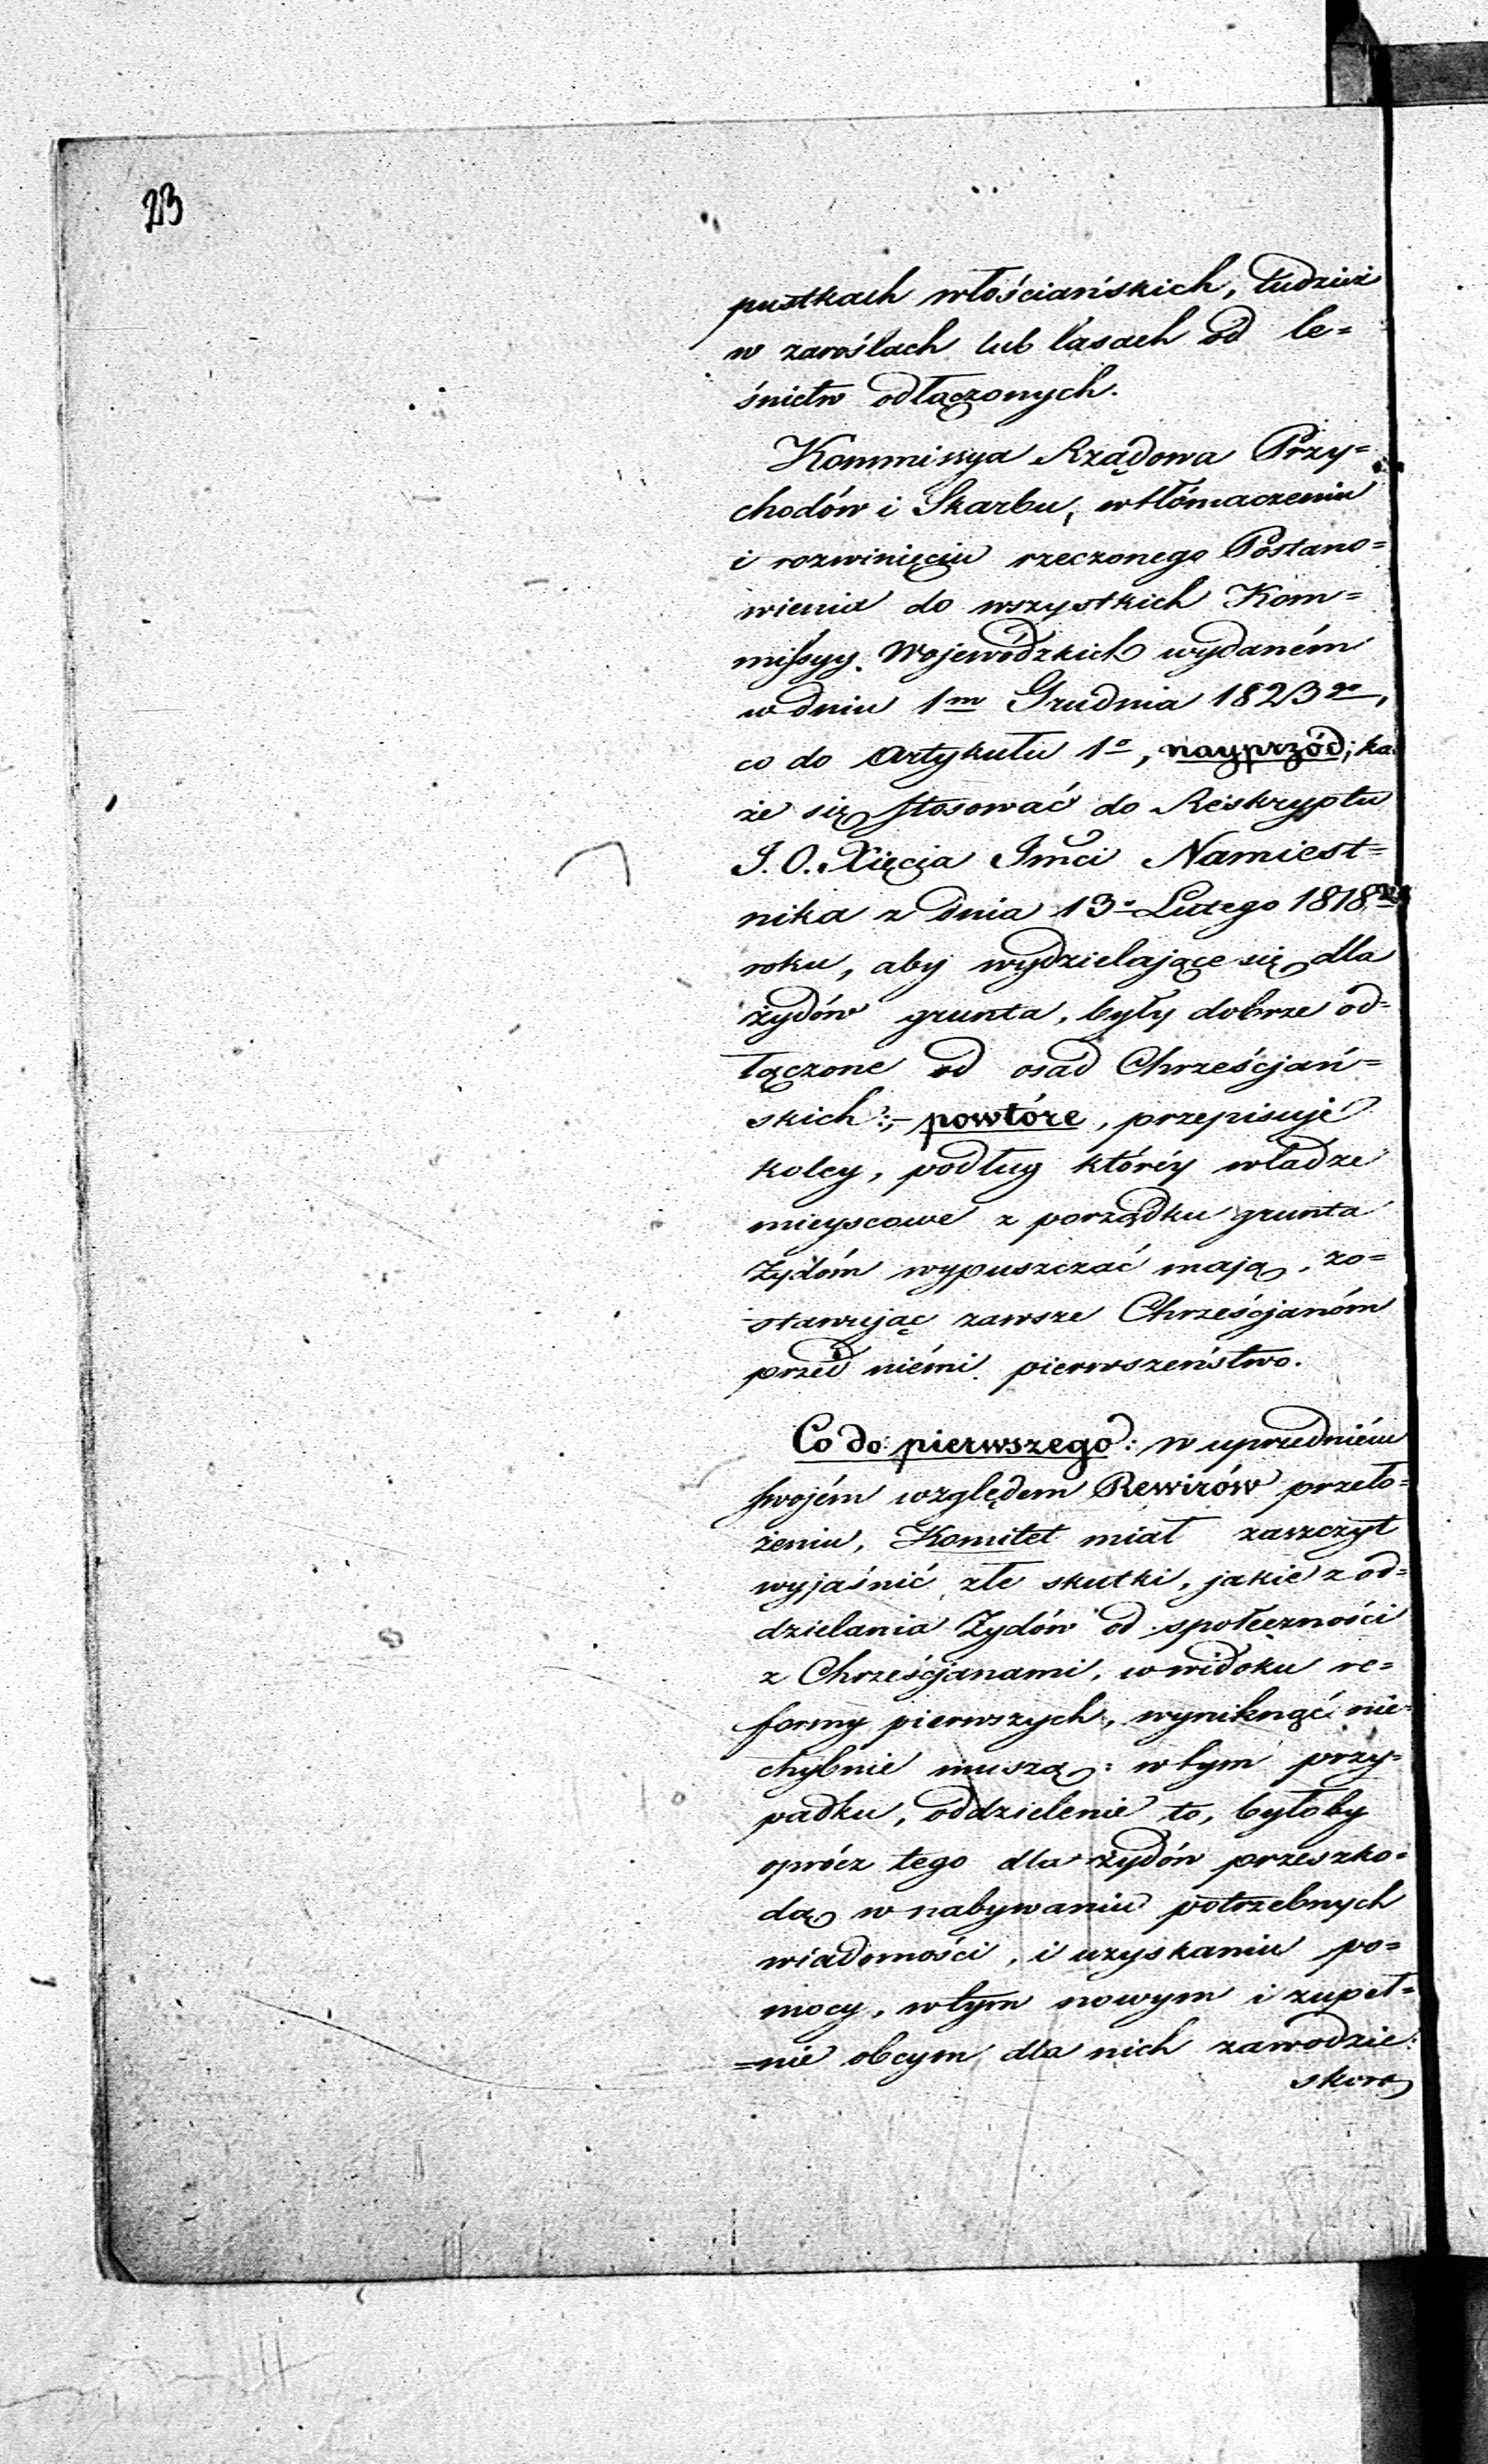 23
pustkach włościańskich, tudzież
w zaroślach lub lasach od le=
śnictw odłączonych.
Kommissya Rządowa Przy=
chodów i Skarbu, w tłómaczeniu
i rozwinięciu rzeczonego Postano=
wienia do wszystkich Kom=
missyy Wojewódzkich wydaném
w dniu 1m Grudnia 1823 go,
co do Artykułu 1o, nayprzód; ka
że się stosować do Reskryptu
J. O. Xięcia Jmci Namiest=
nika z dnia 13o Lutego 1818
roku, aby wydzielające się dla
żydów grunta, były dobrze od=
łączone od osad Chrześcjań=
skich:- powtóre, przepisuje
koley, podług któréy władze
mieyscowe z porządku grunta
Żydóm wypuszczać mają, zo=
stawując zawsze Chrześcjanóm
przed niémi pierwszeństwo.
Co do pierwszego: w uprzedniém
swojém względem Rewirów przeło=
żeniu, Komitet miał zaszczyt
wyjaśnić złe skutki, jakie z od=
dzielania Żydów od społeczności
z Chrześcjanami, w widoku re=
formy pierwszych, wyniknąć nie=
chybnie muszą: w tym przy=
padku, oddzielenie to, byłoby
oprócz tego dla żydów przeszko=
dą w nabywaniu potrzebnych
wiadomości, i uzyskaniu po=
mocy, w tym nowym i zupeł=
=nie obcym dla nich zawodzie:
skoro